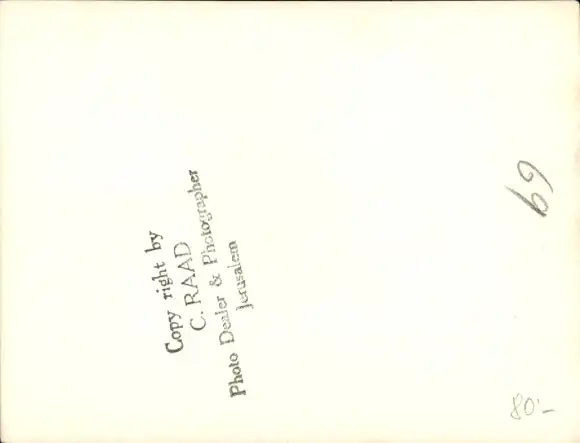 Copy right by
C. RAAD
Photo Dealer & Photographer
Jerusalem
69
80.-